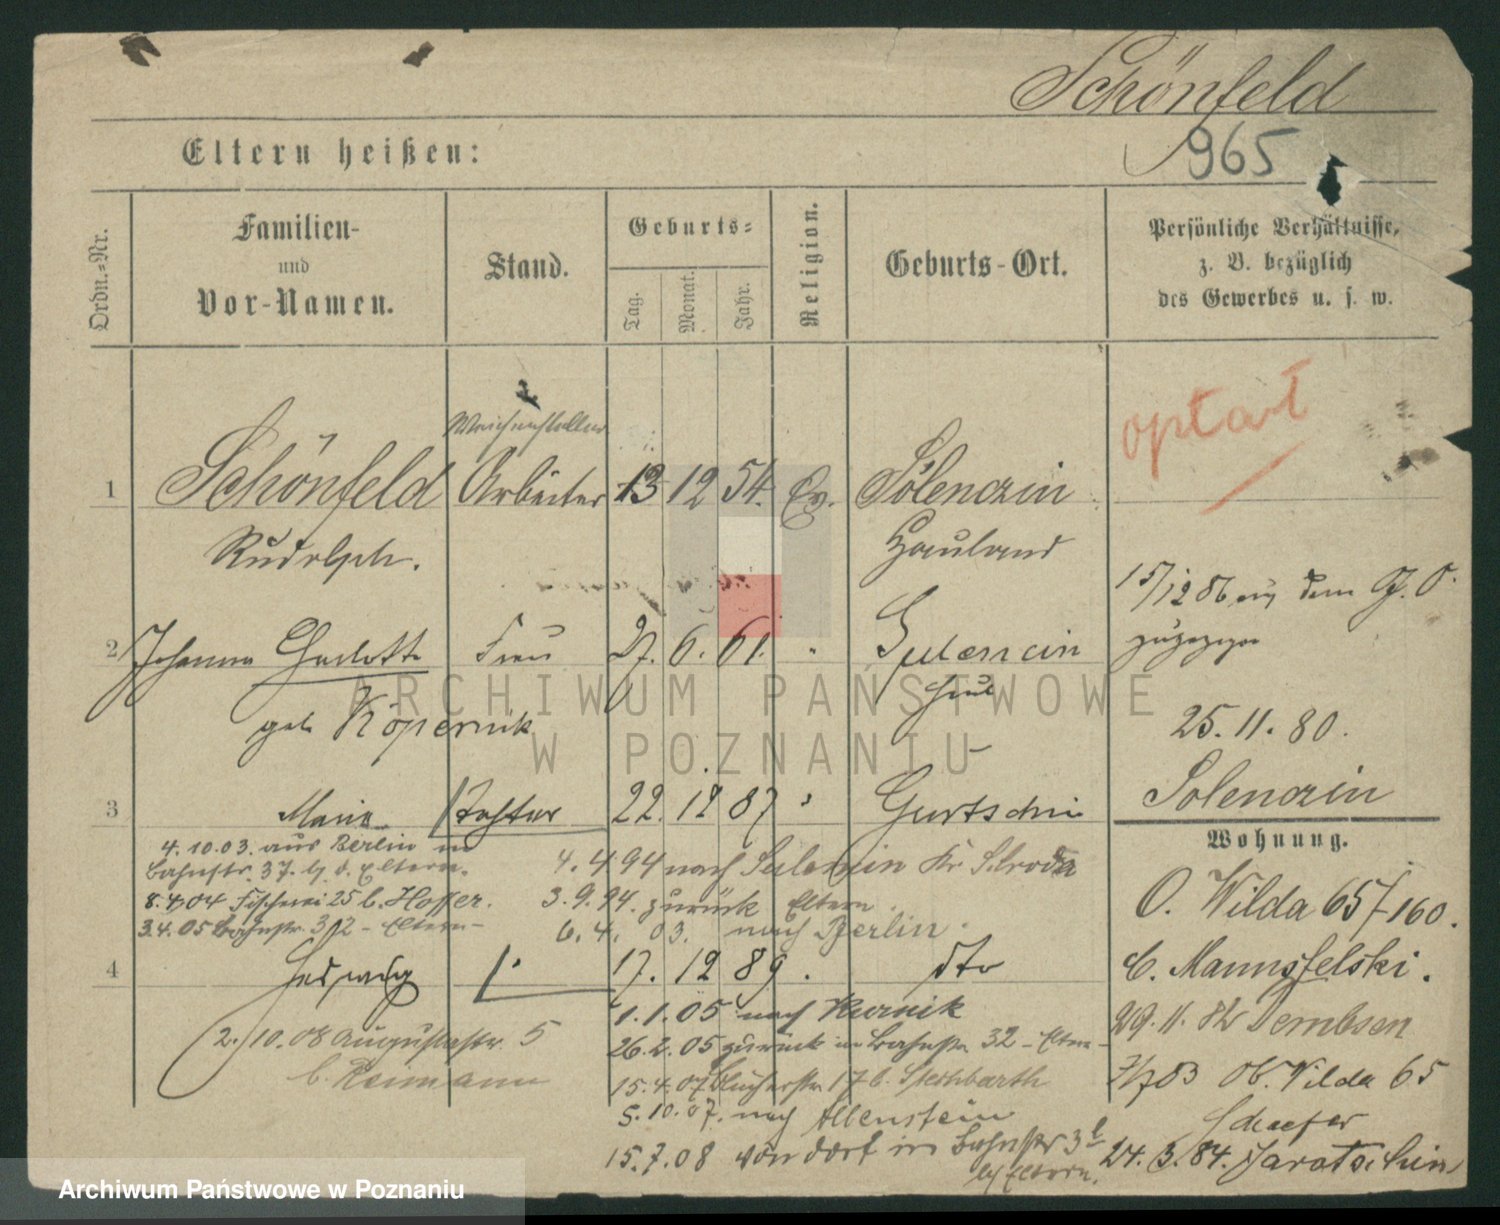 Schönfeld
965
Eltern heißen:
Ordn.-Nr.
Familien-
und
Vor-Namen.
Stand.
Geburts-
Tag.
Monat.
Jahr.
Religion.
Geburts-Ort.
Persönliche Verhältnisse,
z. B. bezüglich
des Gewerbes u. s. w.
optat
Weichensteller
1 Schönfeld Arbeiter 13 12 54. Ev. Solenczin
Rudolph. Hauland
15/12 86 aus dem G. O.
zugezogen
2 Johanna Charlotte Frau 27. 6. 61. "
geb Kopernik
25. 11. 80.
Solenczin
3 Marie Tochter 22. 12 87 " Gurtschin
Wohnung.
4. 10. 03. aus Berlin in
Bahnstr. 37. b. d. Eltern.
8.4.04 Fischerei 25 b. Hoffer.
3.4.05 Bahnstr. 32 - Eltern -
4. 4 94 nach Kr Schroda
3. 9. 94. zurück Eltern.
6. 4. 03. nach Berlin.
O. Wilda 65/160.
4 Hedwig 17. 12 89. dto
2. 10. 08 Augustastr. 5
b. Reimann
1. 1. 05 nach Kurnik
26. 2. 05 zurück in Bahnstr 32 - Eltern -
15. 4. 07 17 b.
5. 10. 07. nach Allenstein
15. 7. 08 von dort in Bahnstr 3
bei Eltern.
29. 11. 82 Dembsen
Ob. Wilda 65
Schaefer
24. 3. 84. Jarotschin
ARCHIWUM PAŃSTWOWE
W POZNANIU
Archiwum Państwowe w Poznaniu